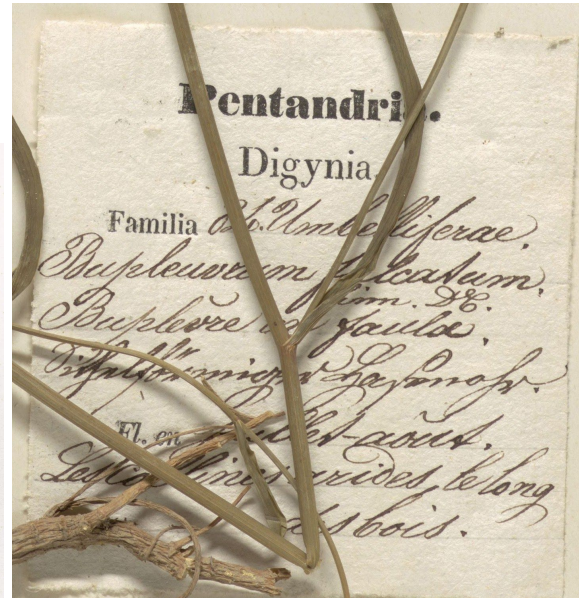 Pentandria.
Digynia
Familia Umbelliferae.
Bupleurum falcatum.
Linn. DC.
Buplèvre en faulx.
Sichelförmiger Hasenohr.
Fl. en Juillet-août.
Les collines arides, le long
des bois.